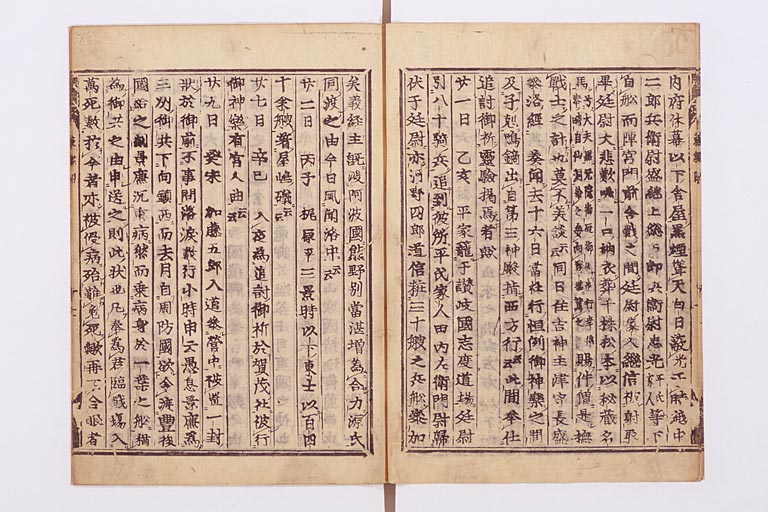 内府休幕以下舎屋黒煙聳天白日蔽光于時越中
二郎兵衛尉盛継上総五郎兵衛尉忠光平氏家人等下
自舩而陣宮門前合戦之間廷尉家人継信被射取
畢廷尉大悲歎嘱一口衲衣葬千株松本以秘蔵名
馬 賜件僧是撫
戦士之計也莫不美談云云同日住吉神主津守長盛
参洛経 奏聞去十六日當社行恒例御神樂之間
及子剋鳴鏑出自第三神殿指西方行云云此間奉仕
追討御祈霊驗掲焉者歟
廿一日 乙亥 平家籠于讃岐國志度道場廷尉
引八十騎兵追到彼所平氏家人田内左衛門尉歸
伏于廷尉亦河野四郎通信粧三十艘之兵舩參加
矣義経主既渡阿波國熊野別當湛増為合力源氏
同渡之由今日風聞洛中云云
廿二日 丙子 梶原平三景時以下東士以百四
十余艘着屋嶋礒云云
廿七日 辛巳 入夜為追討御祈於賀茂社被行
御神樂有宮人曲云云
廿九日 癸未 加藤五郎入道參營中被置一封
状於御前不事問落涙數行小時申云愚息景廉為
三州御共下向鎮西而去月自周防國欲令渡豊後
國給之剋景廉沉重病然而乗病身於一葉之舩猶
為御共之由申送之則此状也凡奉為君臨戦場入
萬死數於今者亦被侵病殆難免死歟再不合眼者